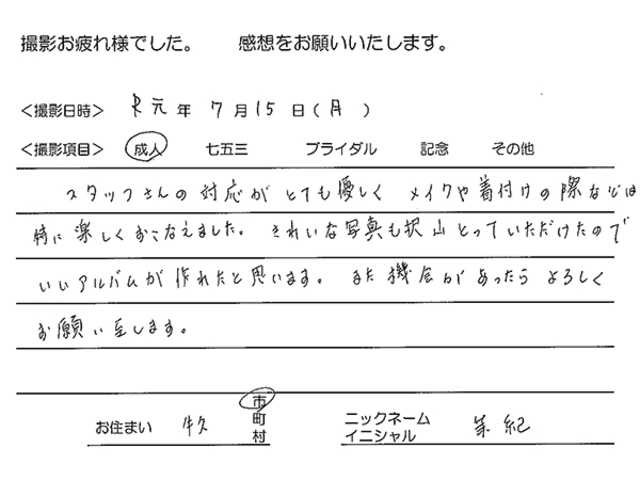 撮影お疲れ様でした。 感想をお願いいたします。
<撮影日時> R元年 7月15日(月)
<撮影項目> 成人 七五三 ブライダル 記念 その他
スタッフさんの対応がとても優しく メイクや着付けの際などは
特に楽しくおこなえました。きれいな写真も沢山とっていただけたので
いいアルバムが作れたと思います。また機会があったらよろしく
お願い致します。
お住まい 牛久 市町村 ニックネーム イニシャル 紀